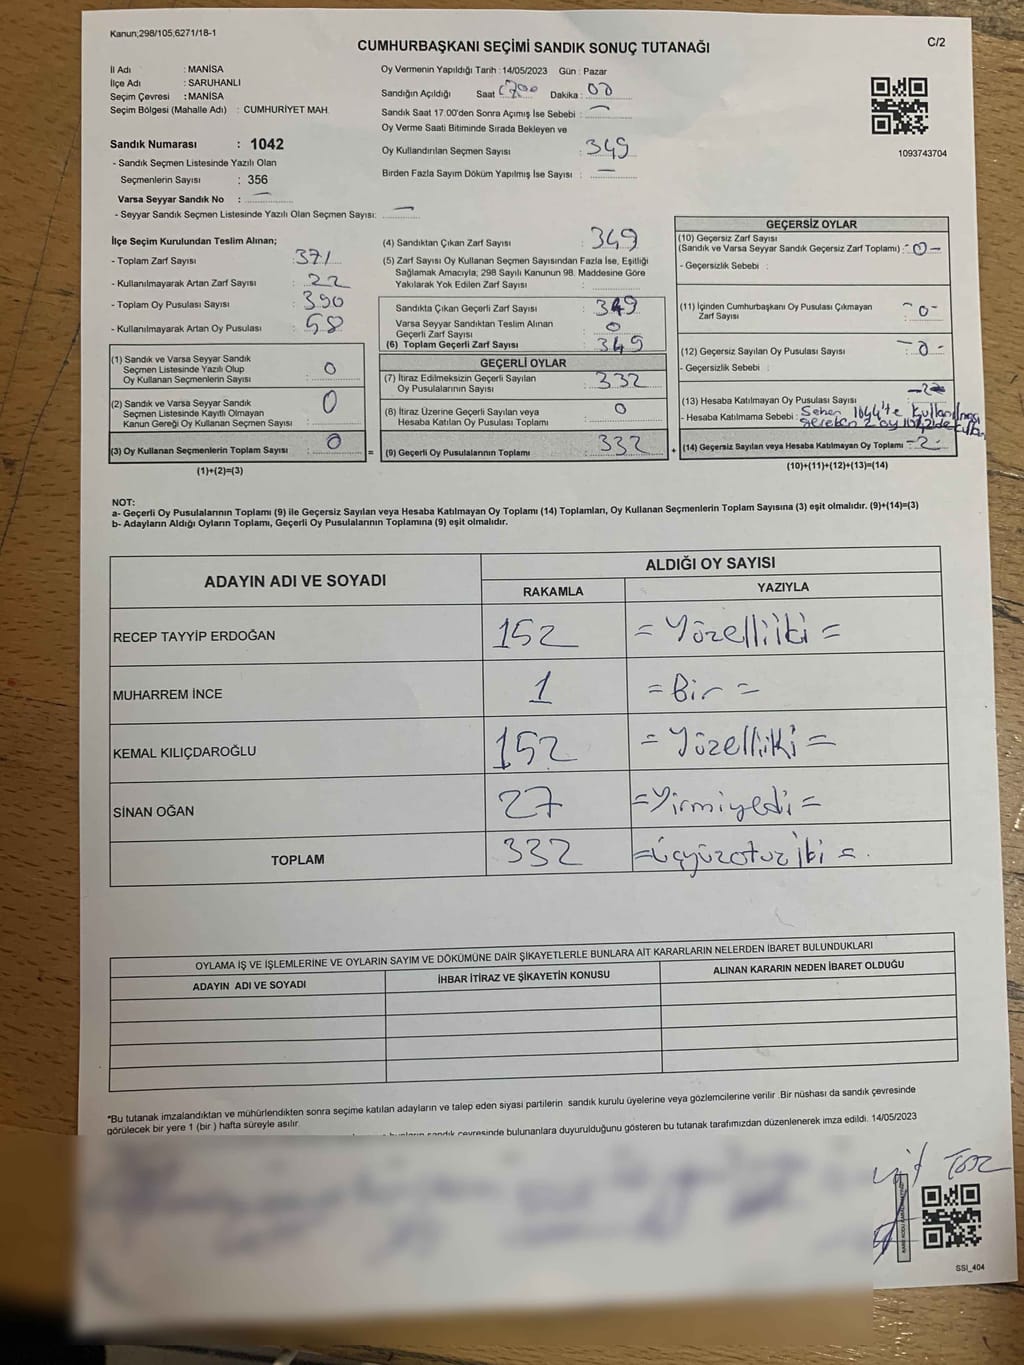 Kanun;298/105;6271/18-1
C/2
CUMHURBAŞKANI SEÇİMİ SANDIK SONUÇ TUTANAĞI
İl Adı : MANİSA
İlçe Adı : SARUHANLI
Seçim Çevresi : MANİSA
Seçim Bölgesi (Mahalle Adı) : CUMHURİYET MAH.
Sandık Numarası : 1042
- Sandık Seçmen Listesinde Yazılı Olan
Seçmenlerin Sayısı : 356
Varsa Seyyar Sandık No : —
- Seyyar Sandık Seçmen Listesinde Yazılı Olan Seçmen Sayısı: —
Oy Vermenin Yapıldığı Tarih : 14/05/2023 Gün : Pazar
Sandığın Açıldığı Saat Dakika : 00
Sandık Saat 17:00'den Sonra Açımış İse Sebebi : —
Oy Verme Saati Bitiminde Sırada Bekleyen ve
Oy Kullandırılan Seçmen Sayısı : 349
Birden Fazla Sayım Döküm Yapılmış İse Sayısı : —
1093743704
İlçe Seçim Kurulundan Teslim Alınan;
- Toplam Zarf Sayısı : 371
- Kullanılmayarak Artan Zarf Sayısı : 22
- Toplam Oy Pusulası Sayısı : 390
- Kullanılmayarak Artan Oy Pusulası : 58
(1) Sandık ve Varsa Seyyar Sandık
Seçmen Listesinde Yazılı Olup
Oy Kullanan Seçmenlerin Sayısı : 0
(2) Sandık ve Varsa Seyyar Sandık
Seçmen Listesinde Kayıtlı Olmayan
Kanun Gereği Oy Kullanan Seçmen Sayısı : 0
(3) Oy Kullanan Seçmenlerin Toplam Sayısı : 0
(1)+(2)=(3)
(4) Sandıktan Çıkan Zarf Sayısı : 349
(5) Zarf Sayısı Oy Kullanan Seçmen Sayısından Fazla İse, Eşitliği
Sağlamak Amacıyla; 298 Sayılı Kanunun 98. Maddesine Göre
Yakılarak Yok Edilen Zarf Sayısı :
Sandıkta Çıkan Geçerli Zarf Sayısı : 349
Varsa Seyyar Sandıktan Teslim Alınan
Geçerli Zarf Sayısı : 0
(6) Toplam Geçerli Zarf Sayısı : 349
GEÇERLİ OYLAR
(7) İtiraz Edilmeksizin Geçerli Sayılan
Oy Pusulalarının Sayısı : 332
(8) İtiraz Üzerine Geçerli Sayılan veya
Hesaba Katılan Oy Pusulası Toplamı : 0
= (9) Geçerli Oy Pusulalarının Toplamı : 332
GEÇERSİZ OYLAR
(10) Geçersiz Zarf Sayısı
(Sandık ve Varsa Seyyar Sandık Geçersiz Zarf Toplamı) : -0-
- Geçersizlik Sebebi :
(11) İçinden Cumhurbaşkanı Oy Pusulası Çıkmayan
Zarf Sayısı : -0-
(12) Geçersiz Sayılan Oy Pusulası Sayısı : -0-
- Geçersizlik Sebebi :
(13) Hesaba Katılmayan Oy Pusulası Sayısı : -2-
- Hesaba Katılmama Sebebi : 1044'te Kullanılması
gereken 2 oy 1042'de
+ (14) Geçersiz Sayılan veya Hesaba Katılmayan Oy Toplamı -2-
(10)+(11)+(12)+(13)=(14)
NOT:
a- Geçerli Oy Pusulalarının Toplamı (9) ile Geçersiz Sayılan veya Hesaba Katılmayan Oy Toplamı (14) Toplamları, Oy Kullanan Seçmenlerin Toplam Sayısına (3) eşit olmalıdır. (9)+(14)=(3)
b- Adayların Aldığı Oyların Toplamı, Geçerli Oy Pusulalarının Toplamına (9) eşit olmalıdır.
ADAYIN ADI VE SOYADI
ALDIĞI OY SAYISI
RAKAMLA YAZIYLA
RECEP TAYYİP ERDOĞAN 152 = Yüzelliiki =
MUHARREM İNCE 1 = Bir =
KEMAL KILIÇDAROĞLU 152 = Yüzelliiki =
SİNAN OĞAN 27 = Yirmiyedi =
TOPLAM 332 = üçyüzotuziki =
OYLAMA İŞ VE İŞLEMLERİNE VE OYLARIN SAYIM VE DÖKÜMÜNE DAİR ŞİKAYETLERLE BUNLARA AİT KARARLARIN NELERDEN İBARET BULUNDUKLARI
ADAYIN ADI VE SOYADI İHBAR İTİRAZ VE ŞİKAYETİN KONUSU ALINAN KARARIN NEDEN İBARET OLDUĞU
*Bu tutanak imzalandıktan ve mühürlendikten sonra seçime katılan adayların ve talep eden siyasi partilerin sandık kurulu üyelerine veya gözlemcilerine verilir .Bir nüshası da sandık çevresinde
görülecek bir yere 1 (bir ) hafta süreyle asılır.
sandık çevresinde bulunanlara duyurulduğunu gösteren bu tutanak tarafımızdan düzenlenerek imza edildi. 14/05/2023
SSI_404